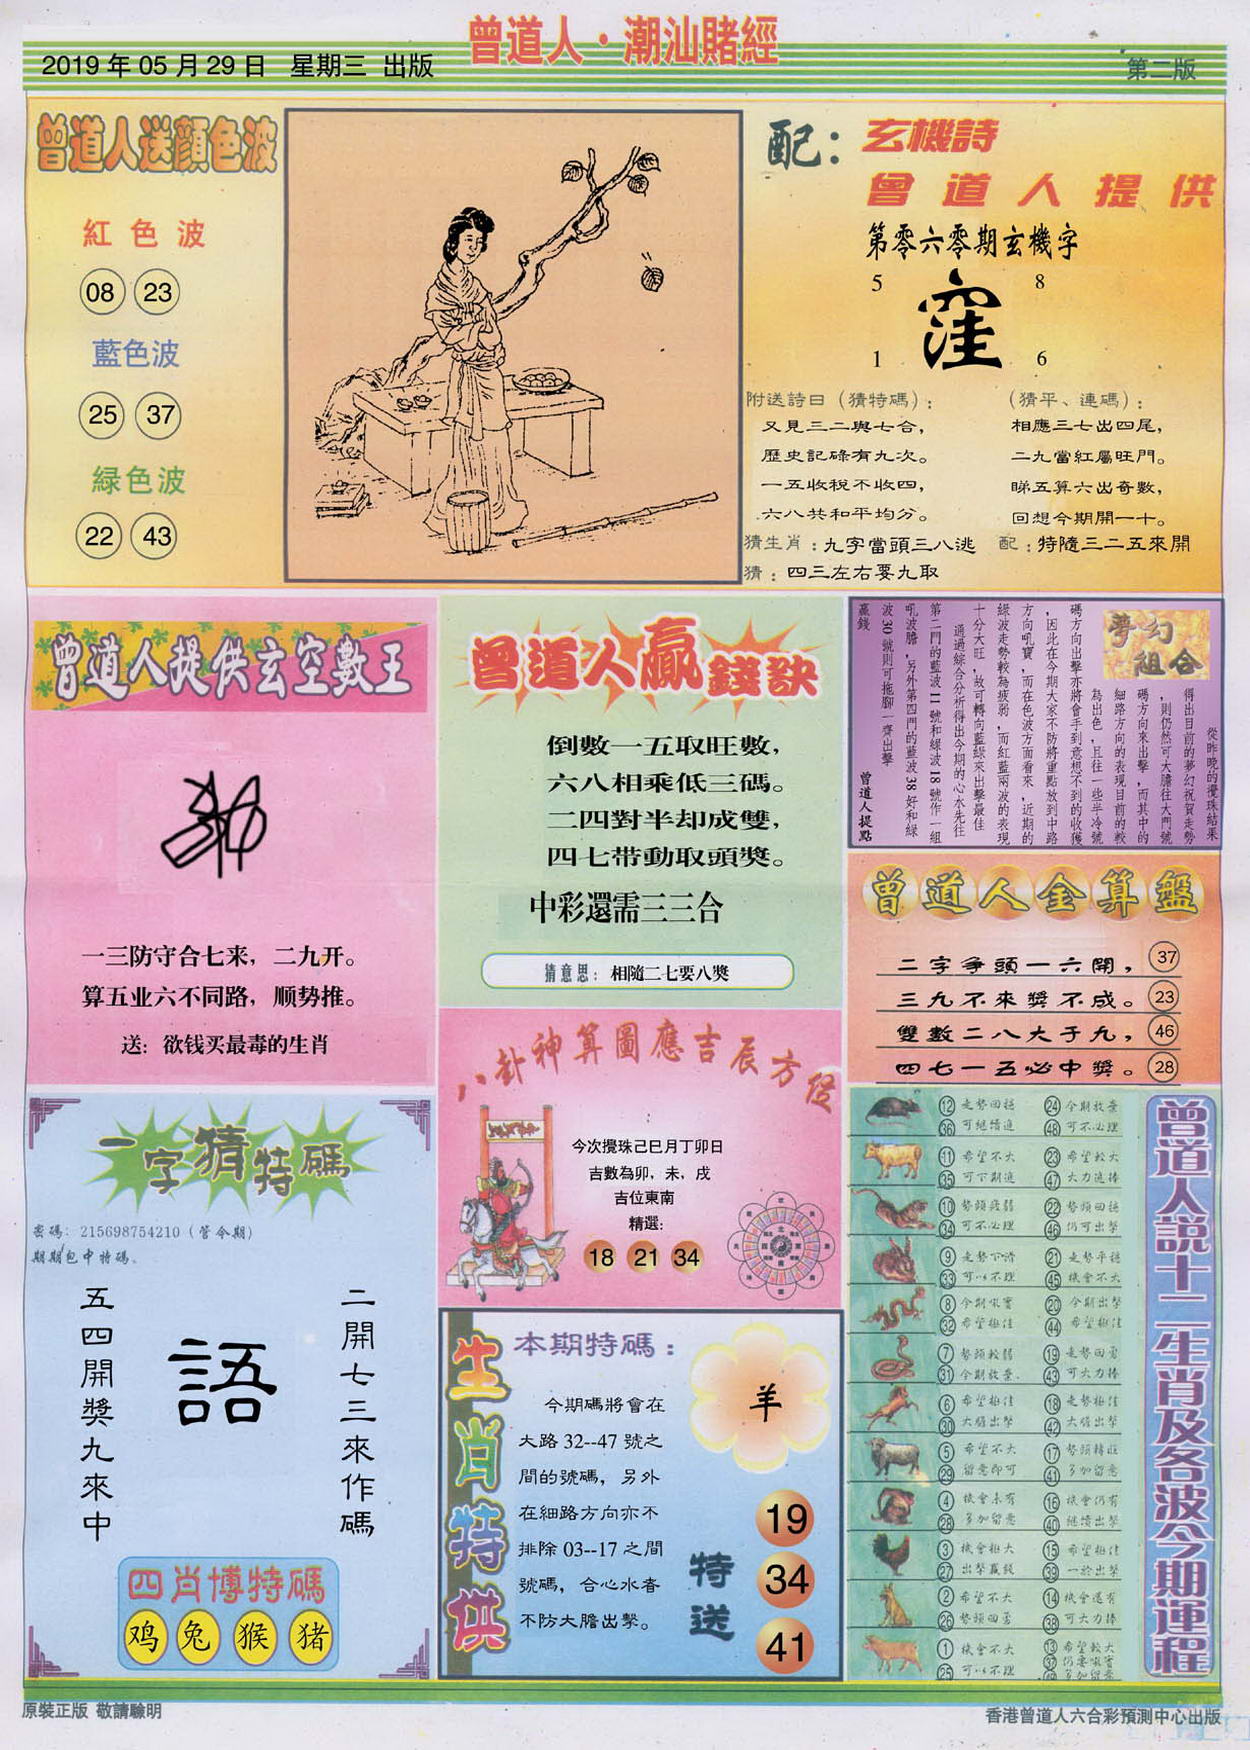 曾道人·潮汕賭經
2019年05月29日 星期三 出版
第二版
曾道人送顔色波
紅色波
08 23
藍色波
25 37
緑色波
22 43
配：玄機詩
曾道人提供
第零六零期玄機字
5 8
窪
1 6
附送詩日（猜特碼）：
又見三二與七合，
歷史記碌有九次。
一五收税不收四，
六八共和平均分。
（猜平、連碼）：
相應三七出四尾，
二九當紅屬旺門。
睇五算六出奇數，
回想今期開一十。
猜生肖：九字當頭三八逃 配：特隨三二五來開
猜：四三左右要九取
曾道人提供玄空數王
一三防守合七来，二九开。
算五业六不同路，顺势推。
送：欲钱买最毒的生肖
曾道人贏錢訣
倒數一五取旺數，
六八相乘低三碼。
二四對半却成雙，
四七带動取頭獎。
中彩還需三三合
猜意思：相隨二七要八獎
夢幻
組合
從昨晚的攪珠結果
得出目前的夢幻祝賀走勢
，則仍然可大膽往大門號
碼方向來出擊，而其中的
細路方向的表現目前的較
為出色，且往一些半冷號
碼方向出擊亦將會手到意想不到的收獲
，因此在今期大家不防將重點放到中路
方向吼寶，而在色波方面看來，近期的
綠波走勢較為疲弱，而紅藍兩波的表現
十分大旺，故可轉向藍綠來出擊最佳
通過綜合分析得出今期的心水先往
第二門的藍波11號和綠波18號作一組
吼波膽，另外第四門的藍波38好和綠
波30號則可拖腳一齊出擊
贏錢
曾道人提點
曾道人金算盤
二字爭頭一六開，37
三九不來獎不成。23
雙數二八大于九，46
四七一五必中獎。28
八卦神算圖應吉辰方位
今次攪珠己巳月丁卯日
吉數為卯，未，戌
吉位東南
精選：
18 21 34
一字猜特碼
密碼：215698754210（管今期）
期期包中特碼。
二開七三來作碼
語
五四開獎九來中
四肖博特碼
鸡 兔 猴 猪
生肖特供
本期特碼：
羊
今期碼將會在
大路32--47號之
間的號碼，另外
在細路方向亦不
排除03--17之間
號碼，合心水者
不防大膽出擊。
特送
19
34
41
曾道人說十二生肖及各波今期運程
12 走勢回穩 24 今期放棄
36 可繼續追 48 可不必理
11 希望不大 23 希望較大
35 可下期追 47 大力追捧
10 勢頭疲弱 22 勢頭回穩
34 可不必理 46 仍可出擊
9 走勢下滑 21 走勢平穩
33 可以不理 45 機會不大
8 今期吼寶 20 今期出擊
32 希望極佳 44 希望極佳
7 勢頭較弱 19 走勢回勇
31 今期放棄 43 可大力捧
6 希望極佳 18 走勢極佳
30 大膽出擊 42 大膽出擊
5 希望不大 17 勢頭轉旺
29 留意即可 41 多加留意
4 機會未有 16 機會仍有
28 多加留意 40 繼續出擊
3 機會極大 15 希望極佳
27 出擊贏錢 39 一於出擊
2 希望不大 14 機會還有
26 勢頭回勇 38 可大力捧
1 機會不大 13 希望較大
25 可以不理 37 仍要吼實
多加留意
原裝正版 敬請驗明
香港曾道人六合彩預測中心出版